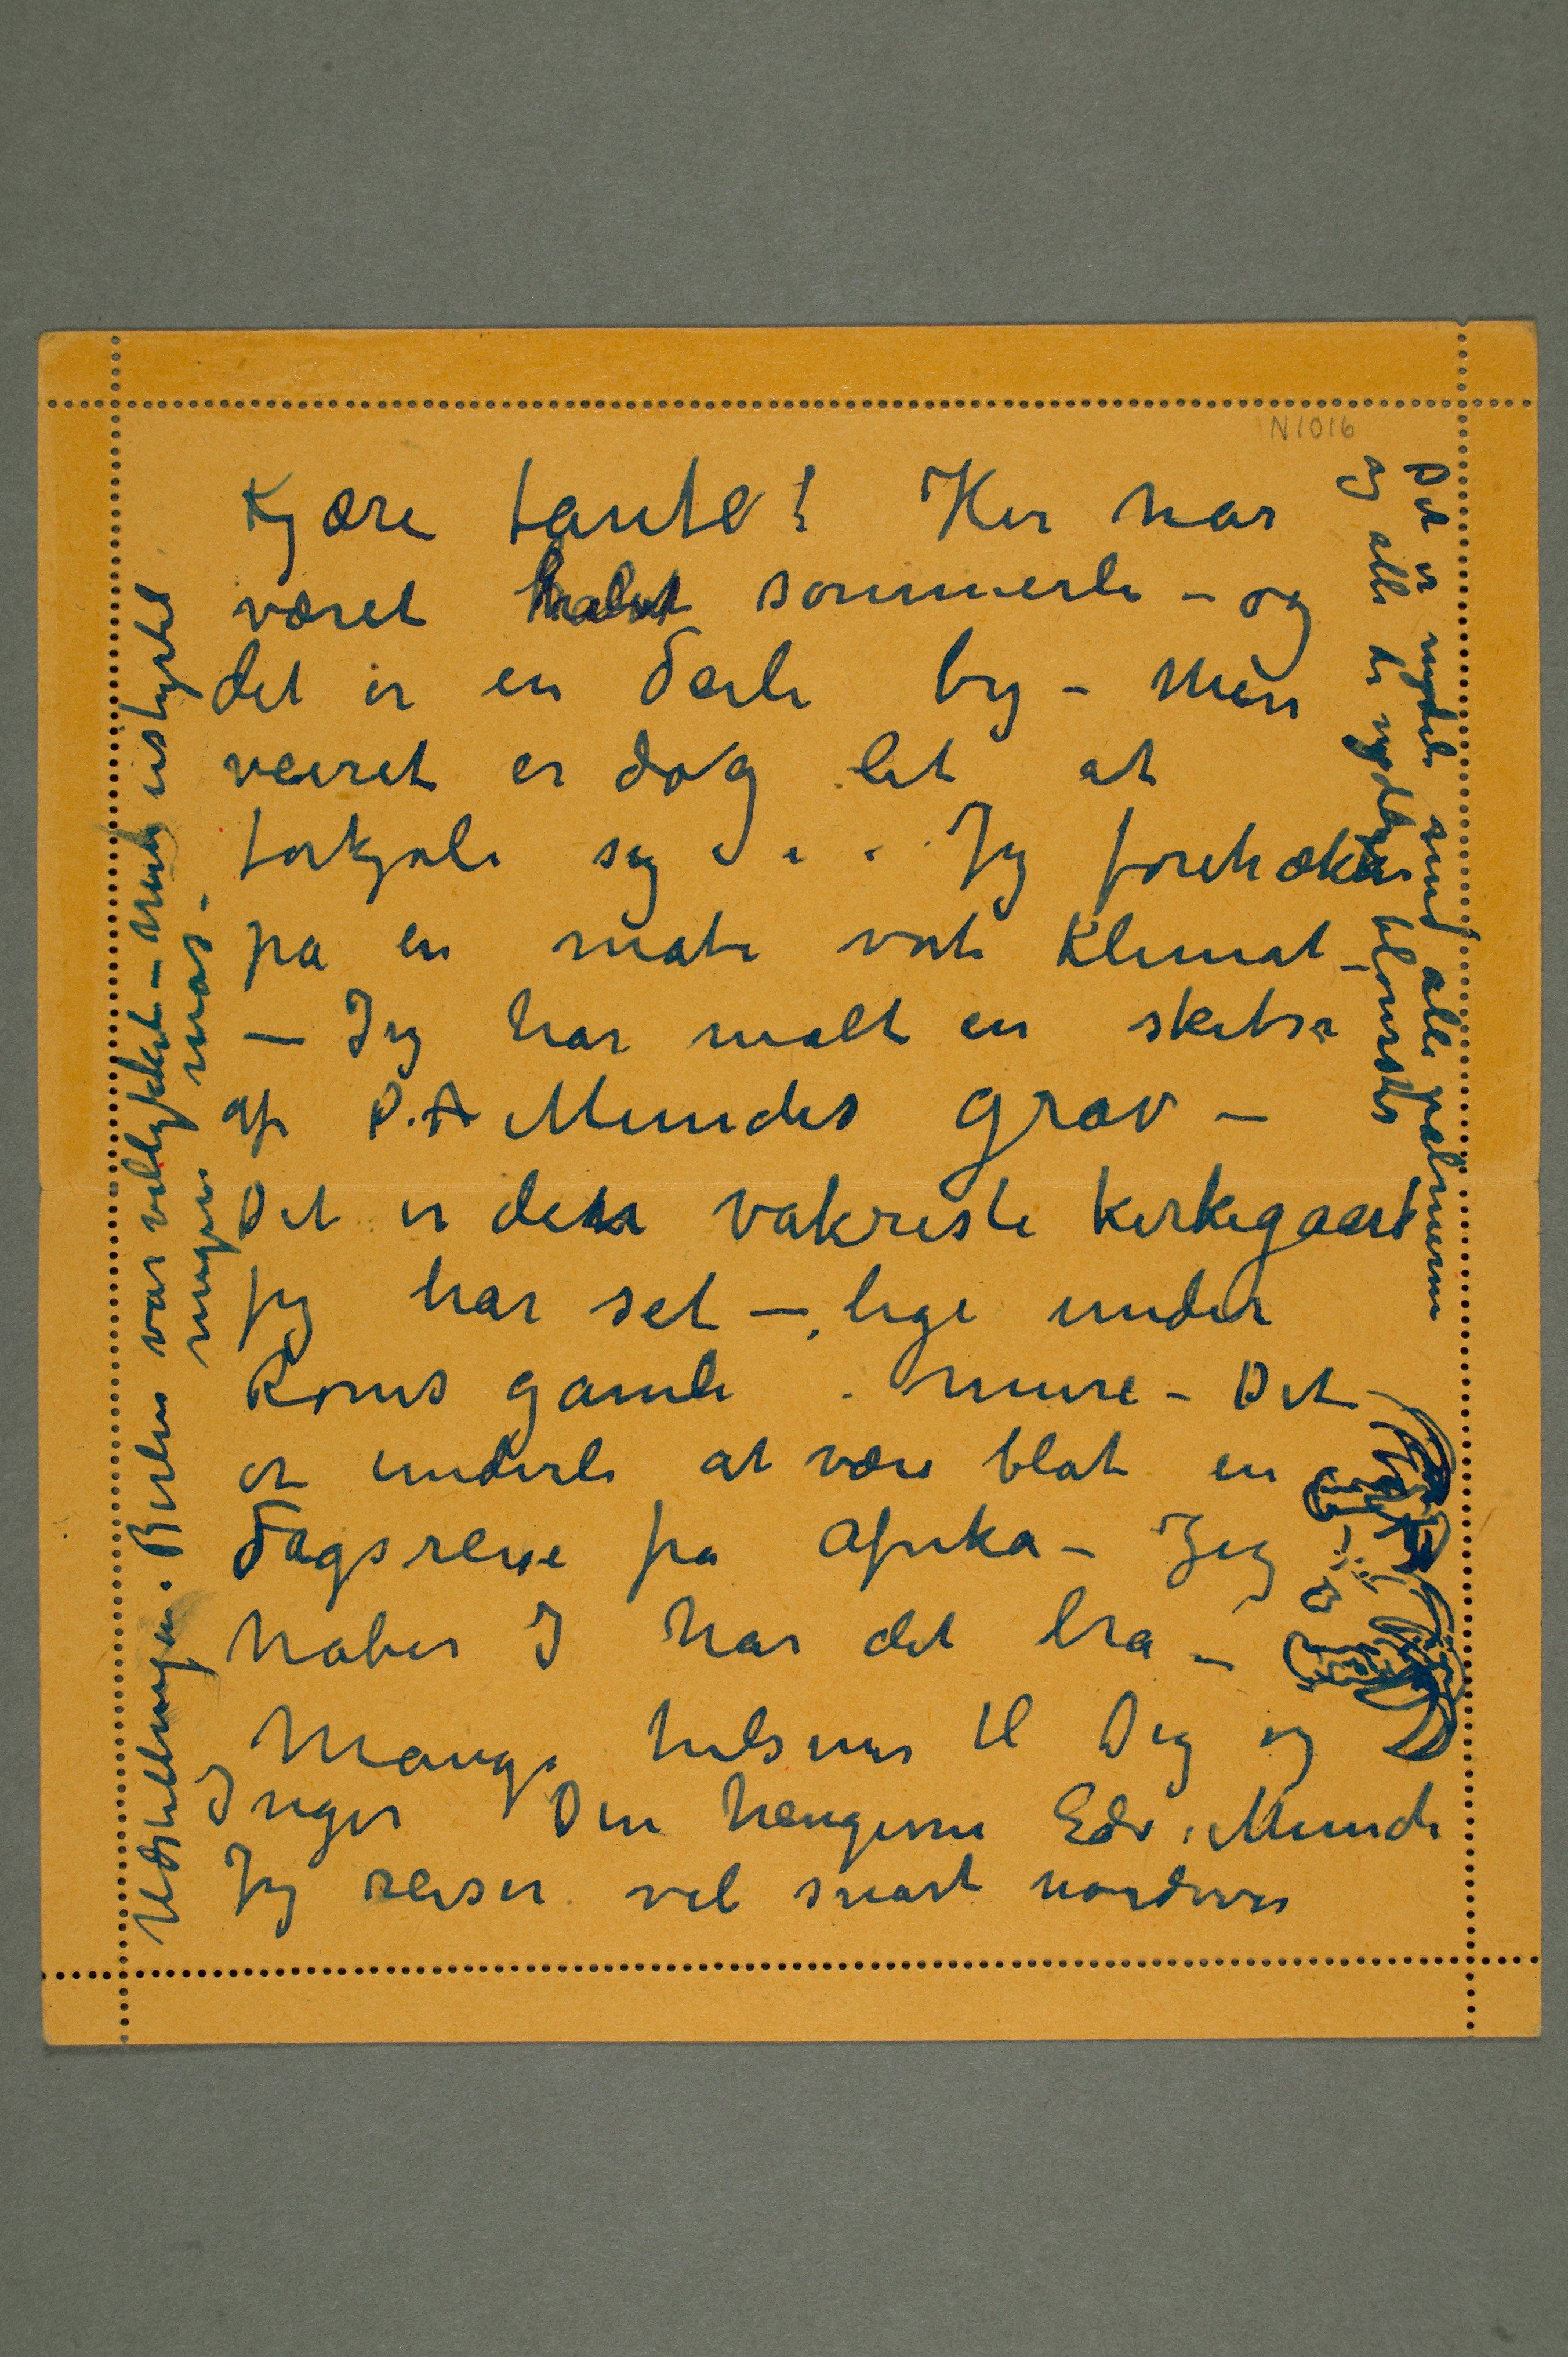 N1016
Kjære tante! Her har
været halvt sommerli – og
det er en deili by – Men
veiret er dog let at
forkjøle sig i. Jeg foretrækker
på en måte vort Klimat –
– Jeg har malt en skitse
af P. A Munchs grav –
Det er den vakreste kirkegaard
jeg har set –, lige under
Roms gamle mure – Det
er underli at være blot en
dagsreise fra Afrika – Jeg
håber I har det bra –
Mange hilsener til Dig og
Inger Din hengivne Edv. Munch
Jeg reiser vel snart nordover
Det er nydeli med alle palmerne
og alle de nydelige blomster
Udstillingen i Berlin var vellykket – men
megen mas –